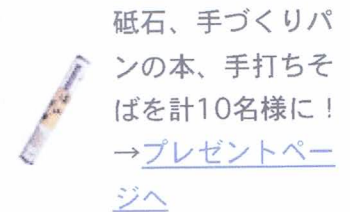 砥石、手づくりパ
ンの本、手打ちそ
ばを計10名様に！
→プレゼントペー
ジへ